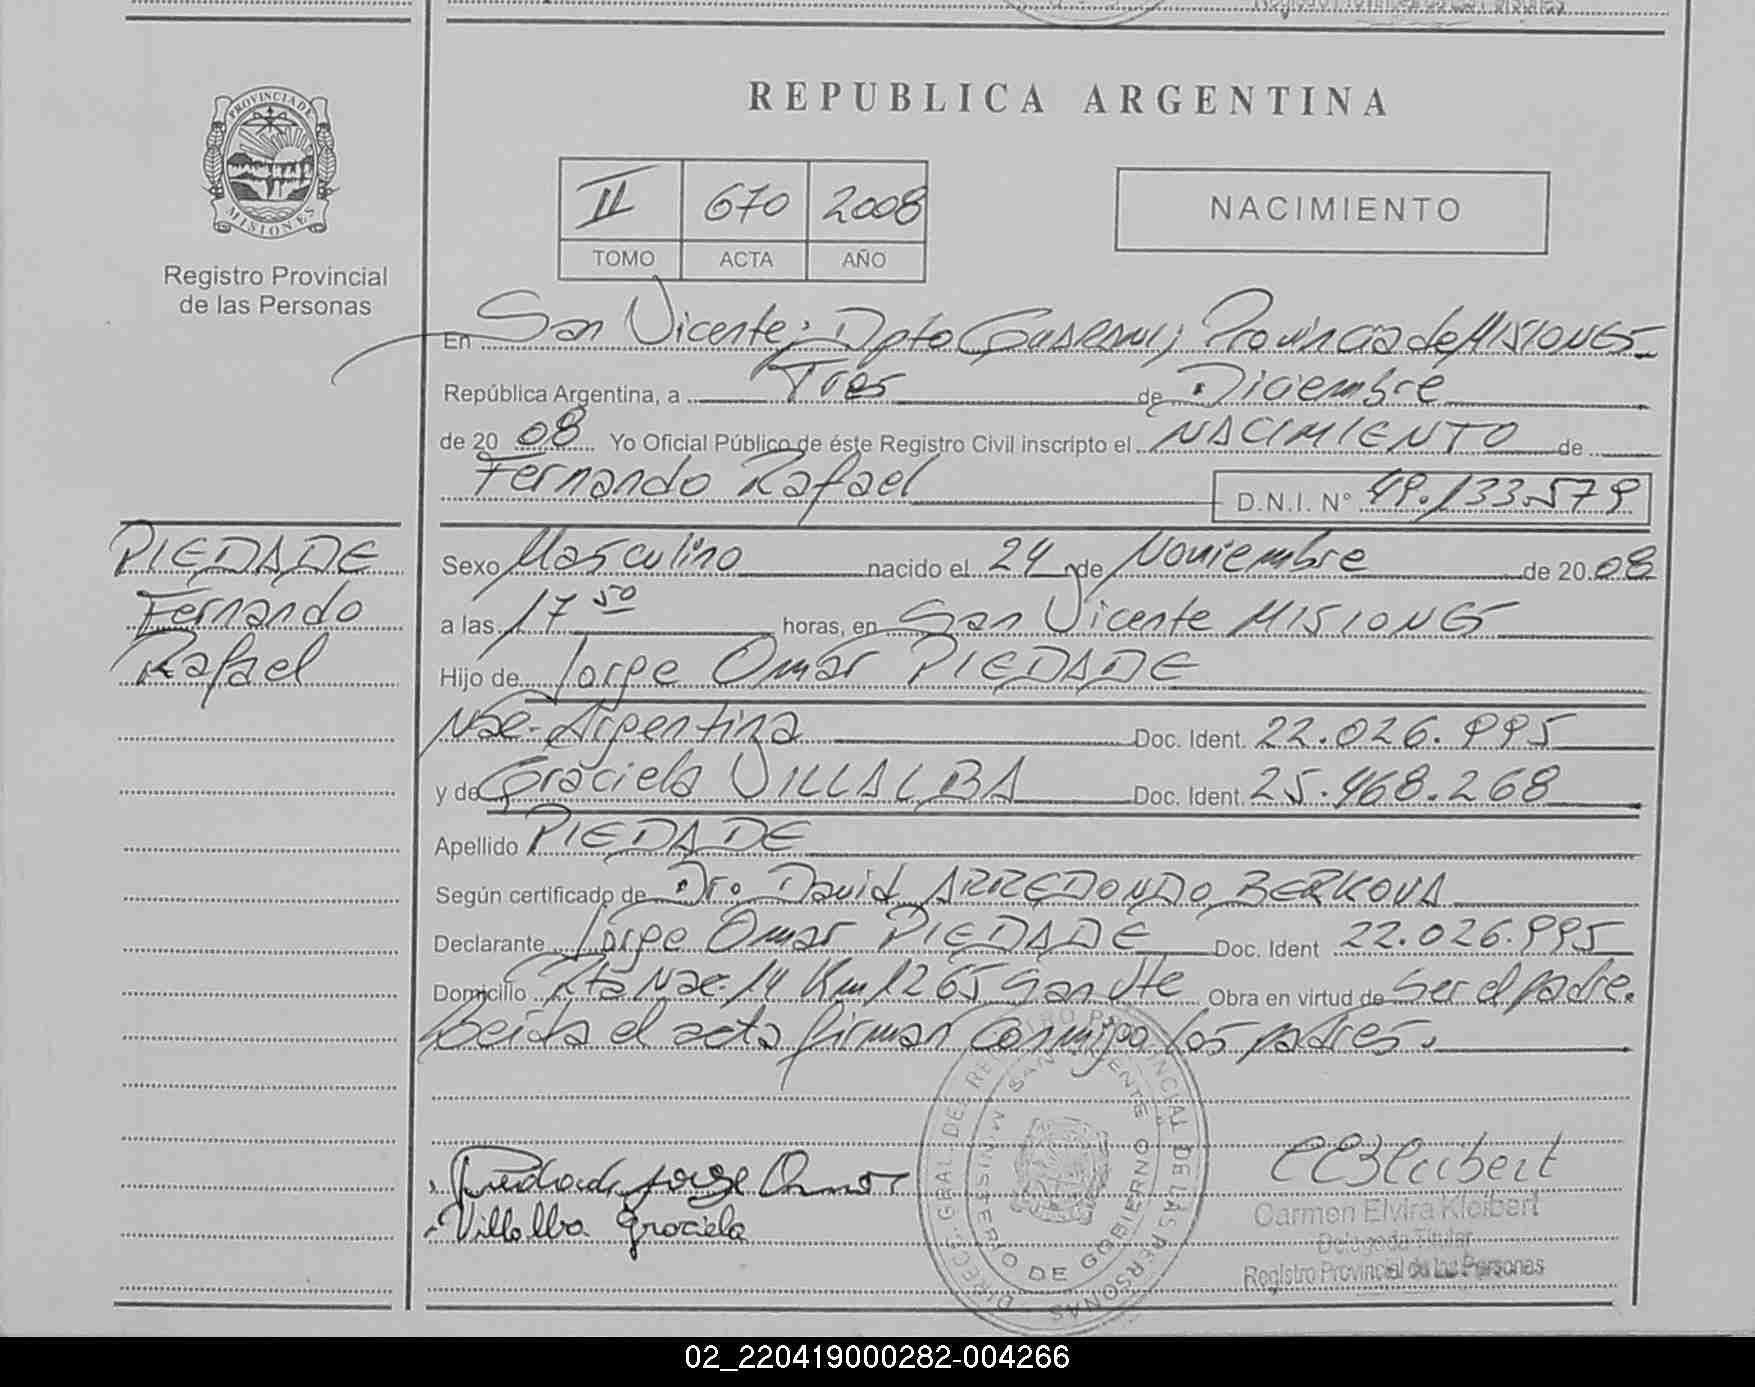 PROVINCIA DE
MISIONES
Registro Provincial
de las Personas
REPUBLICA ARGENTINA
II 670 2008
TOMO ACTA AÑO
NACIMIENTO
En San Vicente; Dpto GUARANI; Provincia de MISIONES
República Argentina, a Tres de Diciembre
de 20 08 Yo Oficial Público de éste Registro Civil inscripto el NACIMIENTO de
Fernando Rafael D.N.I. N° 49.133.579
PIEDADE
Fernando
Rafael
Sexo Masculino nacido el 24 de Noviembre de 20 08
a las 17 50 horas, en San Vicente MISIONES
Hijo de Jorge Omar PIEDADE
Nac. Argentina Doc. Ident. 22.026.995
y de Graciela VILLALBA Doc. Ident. 25.468.268
Apellido PIEDADE
Según certificado de Dro. David ARREDONDO BERKOVA
Declarante Jorge Omar PIEDADE Doc. Ident 22.026.995
Domicilio Rta Nac. 14 Km 1265 San Vte Obra en virtud de Ser el padre.
Leida el acta firman conmigo los padres.
DIRECC. GRAL. DEL REGISTRO PROVINCIAL DE LAS PERSONAS
SAN VICENTE
MINISTERIO DE GOBIERNO
Piedade Jorge Omar
Villalba Graciela
CEKleibert
Carmen Elvira Kleibert
Delegada Titular
Registro Provincial de las Personas
02_220419000282-004266